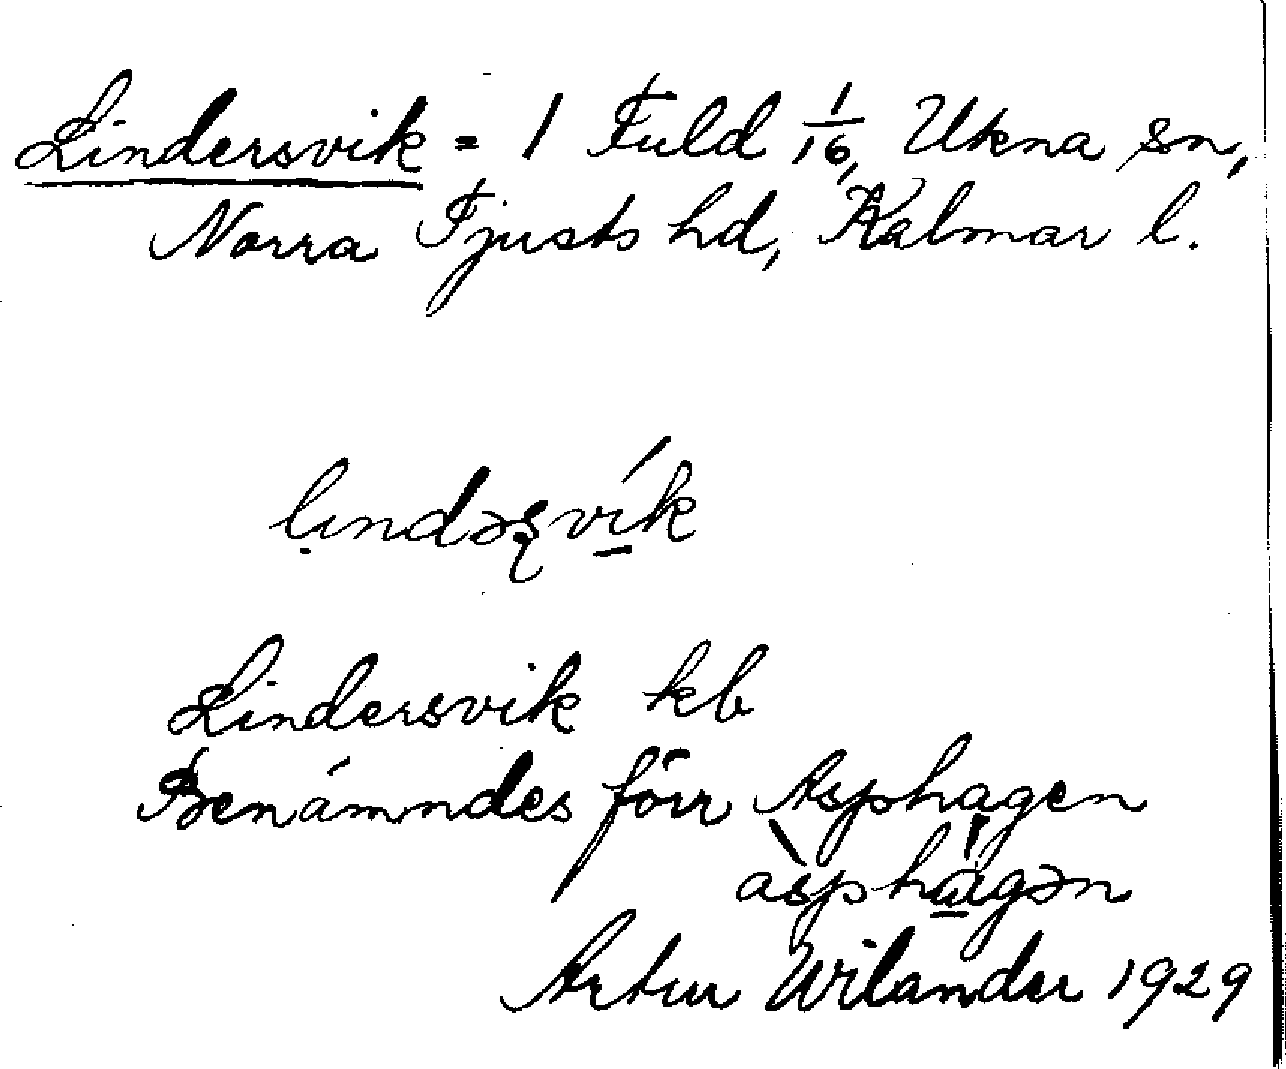 Lindersvik = 1 Fuld 1/16, Ukna sn,
Norra Tjusts hd, Kalmar l.
lindəʂvík
Lindersvik kb
Benämndes förr Asphagen
àsphàgən
Artur Wilander 1929